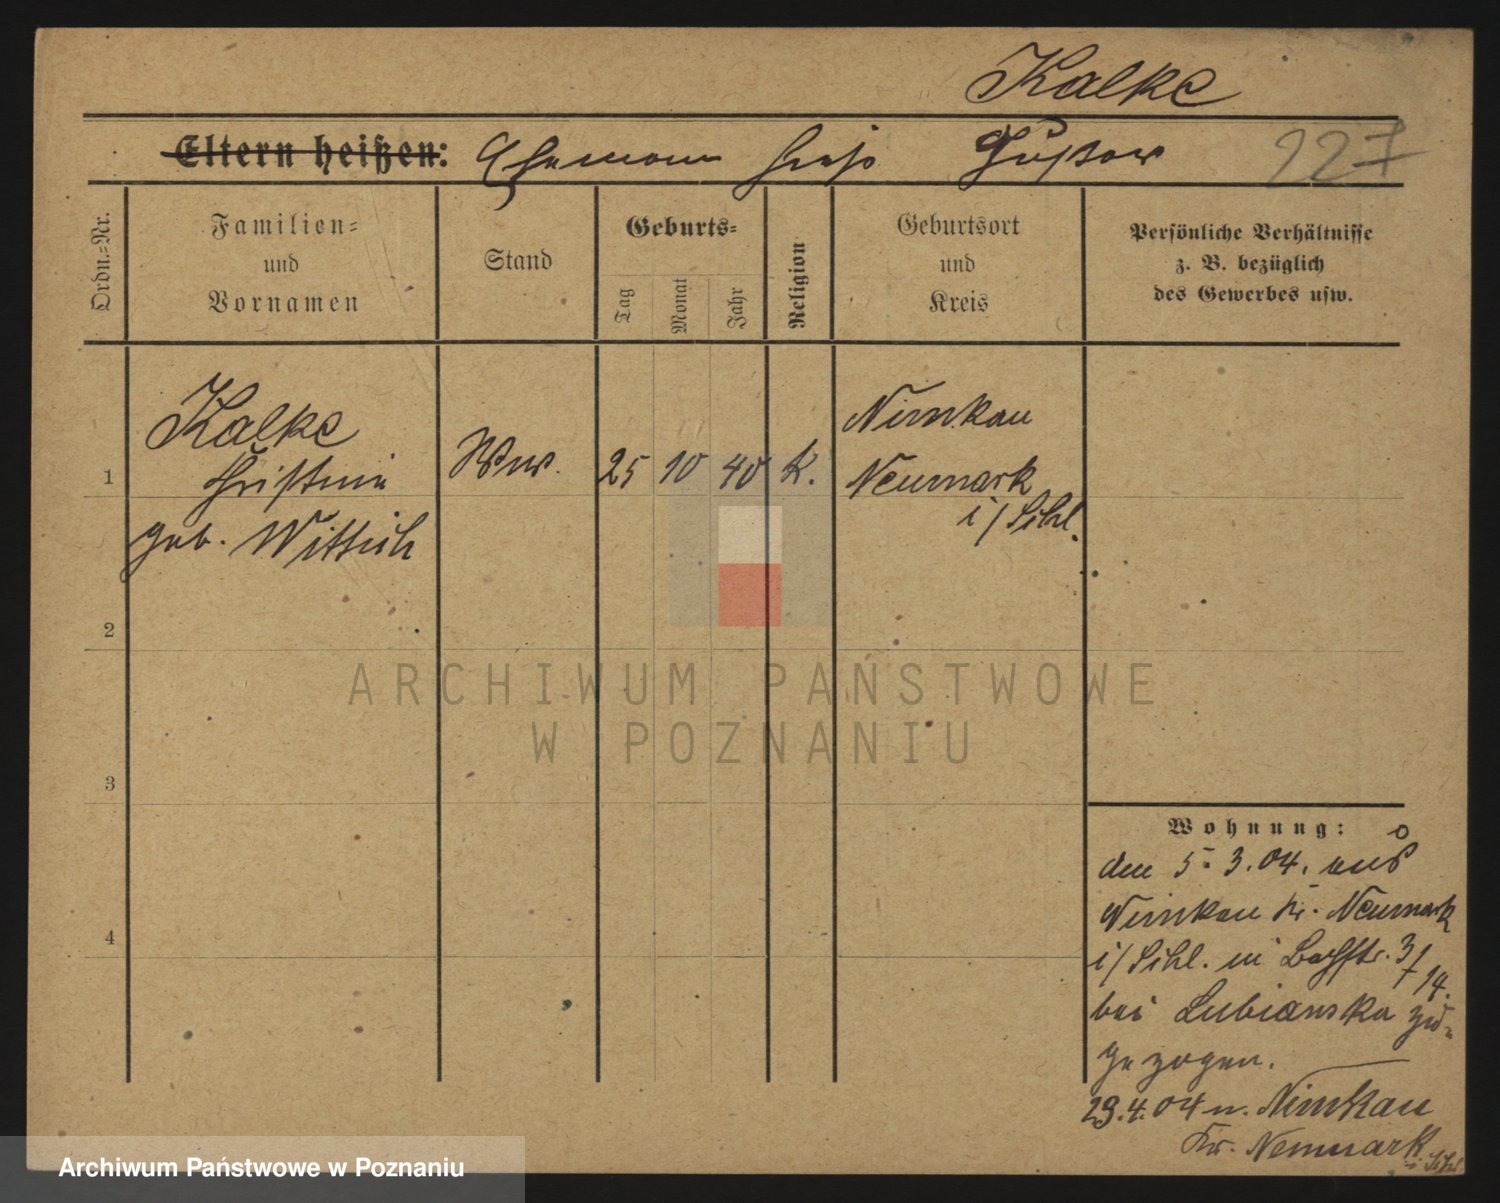 Kalke
Eltern heißen: Ehemann hieß Gustav
227
Ordn.-Nr.
Familien-
und
Vornamen
Stand
Geburts-
Tag
Monat
Jahr
Religion
Geburtsort
und
Kreis
Persönliche Verhältnisse
z. B. bezüglich
des Gewerbes usw.
1
Kalke
Christine
geb. Wittich
Wwe.
25
10
40
K.
Nimkau
Neumark
i/Schl.
2
3
4
Wohnung:
den 5.3.04. aus
Nimkau Kr. Neumark
i/Schl. in 3/14.
bei Lubianska zu-
gezogen.
29.4.04 n. Nimkau
Kr. Neumark
i/Schl
ARCHIWUM PAŃSTWOWE
W POZNANIU
Archiwum Państwowe w Poznaniu